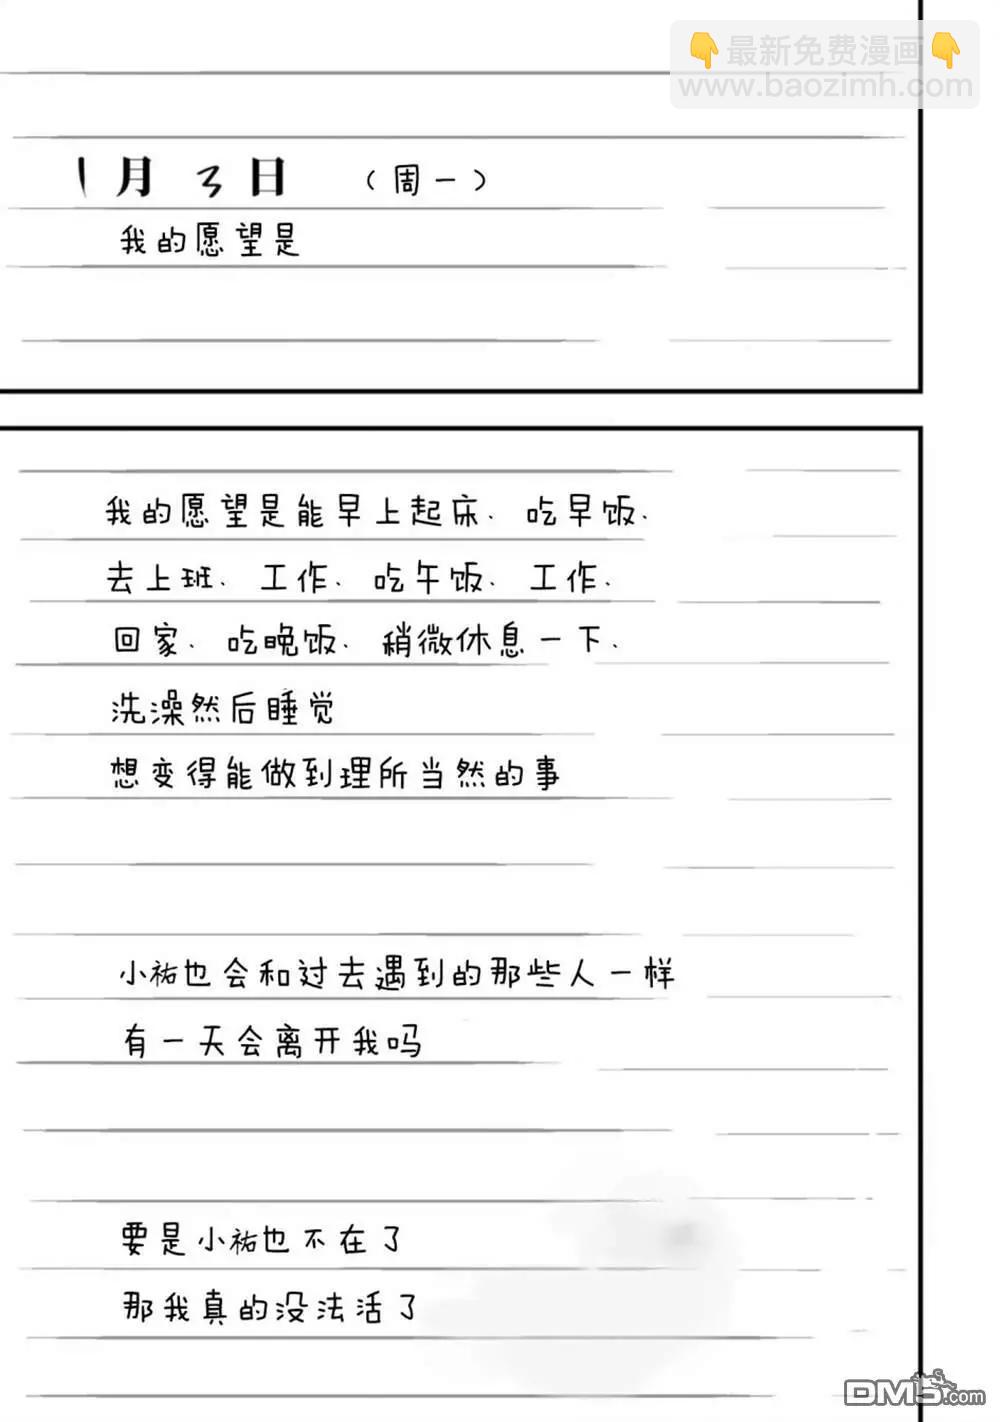 👇最新免费漫画👇
www.baozimh.com
1月3日 （周一）
我的愿望是
我的愿望是能早上起床、吃早饭、
去上班、工作、吃午饭、工作、
回家、吃晚饭、稍微休息一下、
洗澡然后睡觉
想变得能做到理所当然的事
小祐也会和过去遇到的那些人一样
有一天会离开我吗
要是小祐也不在了
那我真的没法活了
DM5.com